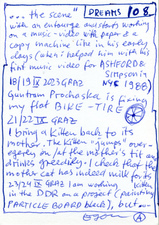 DREAMS 108
... the scene" with
an entourage and start working
on a music-video with paper & a
copy machine like in his early
days (when I helped him with his
first music video for ASHFORD &
Simpson in
NYC 1988)
18/19 IX 2023 GRAZ
Guntram Prochaska is fixing
my flat BIKE-TIRE
21/22 IX GRAZ
I bring a kitten back to its
mother. The kitten "jumps" over-
eagerly on/at the mother's tit and
drinks greedily. I check that the
mother cat has indeed milk for its
23/24 IX GRAZ I am working
in the DDR on a project (painting
PARTICLE BOARD black), but...
A